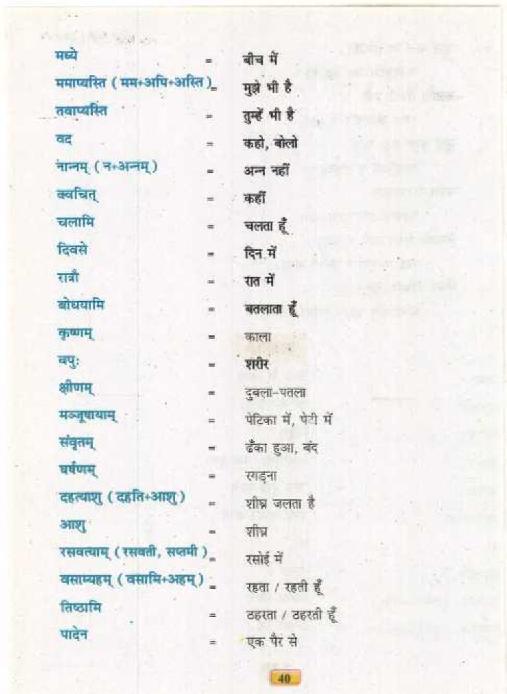 मध्ये = बीच में
ममाप्यस्ति ( मम+अपि+अस्ति ) = मुझे भी है
तवाप्यस्ति = तुम्हें भी है
वद = कहो, बोलो
नान्नम् ( न+अन्नम् ) = अन्न नहीं
क्वचित् = कहीं
चलामि = चलता हूँ
दिवसे = दिन में
रात्रौ = रात में
बोधयामि = बतलाता हूँ
कृष्णम् = काला
वपुः = शरीर
क्षीणम् = दुबला-पतला
मञ्जूषायाम् = पेटिका में, पेटी में
संवृतम् = ढँका हुआ, बंद
घर्षणम् = रगड़ना
दहत्याशु ( दहति+आशु ) = शीघ्र जलता है
आशु = शीघ्र
रसवत्याम् ( रसवती, सप्तमी ) = रसोई में
वसाम्यहम् ( वसामि+अहम् ) = रहता / रहती हूँ
तिष्ठामि = ठहरता / ठहरती हूँ
पादेन = एक पैर से
40